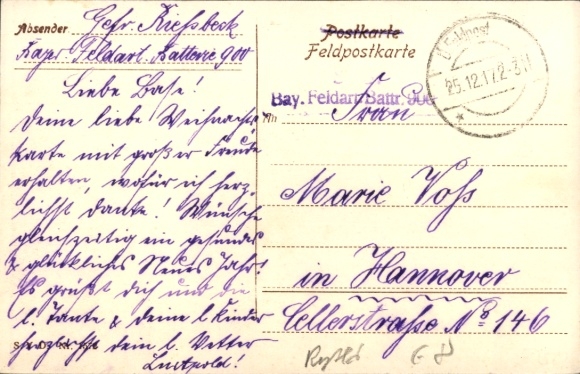 Absender Gefr Kießbeck
Bayr. Feldart. Batterie 900
Postkarte
Feldpostkarte
25.12.17.2-3 N
Bay. Feldart. Battr. 900
Liebe Base!
Deine liebe Weihnachts
karte mit großer Freude
erhalten, wofür ich herz-
lichst danke! Wünsche
gleichzeitig ein gesundes
& glückliches Neues Jahr!
Es grüßt dich und die
l. Tante & deine l. Kinder
herzlichst dein l. Vetter
Luitpold!
An Frau
Marie Voss
in Hannover
Cellerstraße No 146